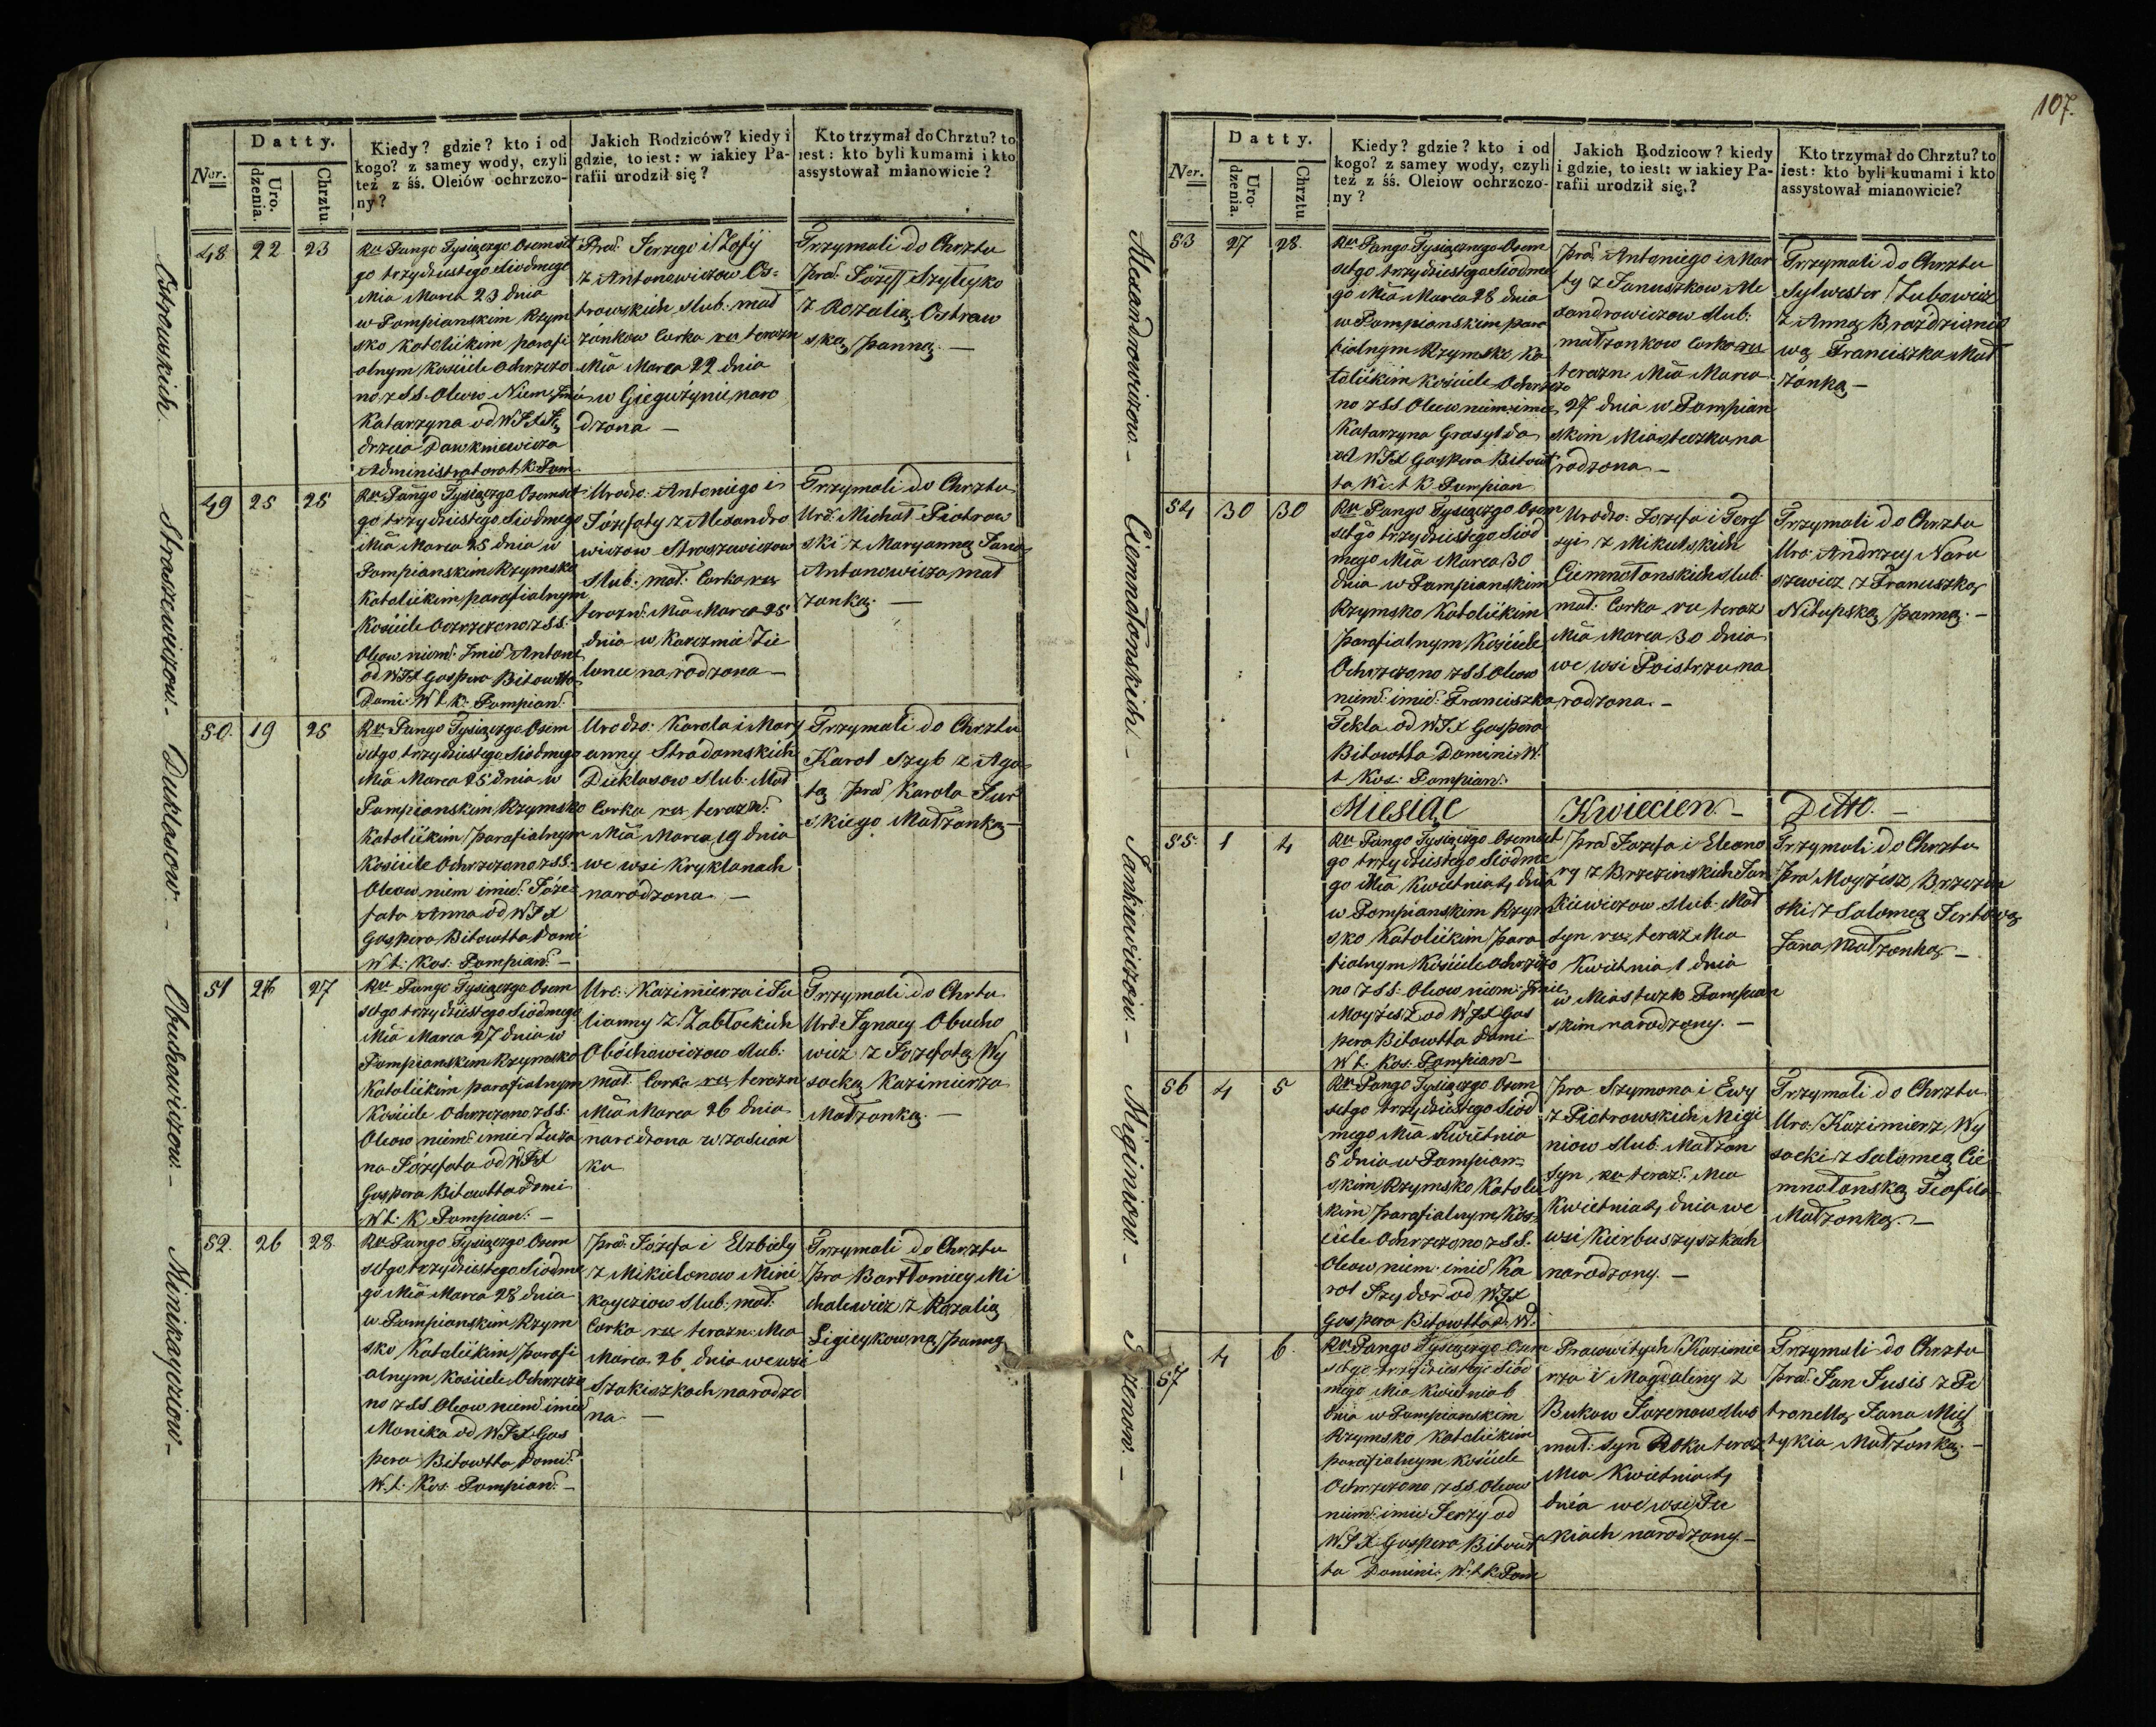 107.
Datty.
Ner.
Uro.
dzenia.
Chrztu
Kiedy? gdzie? kto i od
kogo? z samey wody, czyli
też z śś. Oleiów ochrzczo-
ny?
Jakich Rodziców? kiedy i
gdzie, to iest: w iakiey Pa-
rafii urodził się?
Kto trzymał do Chrztu? to
iest: kto byli kumami i kto
assystował mianowicie?
Ostrowskich.
48
22
23
Ru Pango Tysiączgo Osemset
go trzydziestego Siodmego
Mia Marca 23 dnia
w Pompianskim Rzym
sko Katolickim parafi
alnym Kościele Ochrzczo
no z SS. Oleow Niem Imie
Katarzyna od WJX Ję
drzeia Dawkniewicza
Administratora t. K. Pom.
Prac: Jerzego i Zofij
z Antonowiczow Os=
trowskich slub. mał
żonkow Corka ru terazn
Mia Marca 22 dnia
w Giegużynie naro
dzona —
Trzymali do Chrztu
prac: Józeff Szyleyko
z Rozalią Ostrow
ską panną. —
Straszewiczow. -
49
25
25
Ru Pango Tysiączgo Osemset
go trzydziestego Siodmego
Mia Marca 25 dnia w
Pompianskim Rzymsko
Katolickim parafialnym
Kościele Ochrzczono z SS.
Oleow niem: Imie Antoni
od WJX Gaspera Bitowtta
Domi: W t. K: Pompian:
Urodzo: Antoniego i
Józefaty z Alexandro
wiczow Straszewiczow
slub: mał: Corka ru
terazn: Mia Marca 25
dnia w Karczmie Zie
lonce narodzona —
Trzymali do Chrztu
Urd: Michał Piotrow
ski z Maryanną Jana
Antonowicza mał
żonką. —
Duklasow. -
50.
19
25
Ru Pango Tysiączgo Osem
setgo trzydziestego Siodmego
Mia Marca 25 dnia w
Pompianskim Rzymsko
Katolickim parafialnym
Kościele Ochrzczono z SS.
Oleow niem imie: Józe
fata Anna od WJX
Gaspera Bitowtta Domi
W t: Kos: Pompian: —
Urodzo: Karola i Mary
anny Stradomskich
Duklasow Slub. Mał
Corka ru terazn:
Mia Marca 19 dnia
we wsi Kryklanach
narodzona —
Trzymali do Chrztu
Karol Szyb z Aga
tą prac Karola Jur
skiego Małżonką —
Obuchowiczow. -
51
26
27
Ru Pango Tysiączgo Osem
setgo trzydziestego Siodmego
Mia Marca 27 dnia w
Pompianskim Rzymsko
Katolickim parafialnym
Kościele Ochrzczono z SS.
Oleow niem: imie Zuza
na Józefata od WJX
Gaspera Bitowtta Domi
W t: K Pompian: —
Uro: Kazimierza i Ju
lianny z Zabłockich
Obóchowiczow slub:
mał. Corka ru terazn
Mia Marca 26 dnia
narodzona w zaścian
ku
Trzymali do Chrtu
Urd: Ignacy Obucho
wicz z Jozefatą Wy
socką Kazimierza
Małżonką. —
Minikayciow —
52.
26
28
Ru Pango Tysiączgo Osem
setgo trzydziestego Siodme
go Mia Marca 28 dnia
w Pompianskim Rzym
sko Katolickim parafi
alnym Kościele Ochrzczo
no z SS Oleow niem: imie
Monika od WJX Gas
pera Bitowtta Domi:
W t: Kos: Pompian: —
prac: Józefa i Elzbiety
z Mikielonow Mini
kayciow slub: mał:
Corka ru terazn: Mea
Marca 26 dnia we wsi
Szakiszkach narodzo
na —
Trzymali do Chrztu
pra Bartłomiey Mi
chalewicz z Rozalią
Ligieykowną panną
Datty.
Ner.
Uro.
dzenia.
Chrztu
Kiedy? gdzie? kto i od
kogo? z samey wody, czyli
też z śś. Oleiow ochrzczo-
ny?
Jakich Rodzicow? kiedy
i gdzie, to iest: w iakiey Pa-
rafii urodził się,?
Kto trzymał do Chrztu? to
iest: kto byli kumami i kto
assystował mianowicie?
Alexandrowiczow. -
53
27
28
Ru Pango Tysiącznego Osem
setgo trzydziestego Siodme
go Mia Marca 28 dnia
w Pompianskim para
fialnym Rzymsko Ka
tolickim Kościele Ochrzczo
no z SS Oleow niem: imie
Katarzyna Grasylda
od WJX Gaspera Bitowt
ta Wi t K Pompian
prac: Antoniego i Mar
ty z Januszkow Ale
xandrowiczow slub:
małżonkow Corka ru
terazn: Mia Marca
27 dnia w Pompian
skim Miasteczku na
rodzona —
Trzymali do Chrztu
Sylwester Zubowicz
z Anną Brazdzionio
wą Franciszka Mał
żonką —
Ciemnołonskich. -
54
30
30
Ru Pango Tysiączgo Osem
setgo trzydziestego Siod
mego Mia Marca 30
dnia w Pompianskim
Rzymsko Katolickim
Parafialnym Kościele
Ochrzczono z SS Oleow
niem: imie: Franciszka
Tekla od WJX Gaspera
Bitowtta Domini: W:
t Kos: Pompian:
Urodzo: Jozefa i Teref
syi z Mikulskich
Ciemnołonskich slub:
mał: Corka ru teraz
Mia Marca 30 dnia
we wsi Poistrzu na
rodzona. —
Trzymali do Chrztu
Uro: Andrzey Naru
szewicz z Franciszką
Nitupską panną. —
Miesiąc Kwiecien. — Ditto. —
Jankiewiczow. -
55
1
4
Ru Pango Tysiączgo Osemset
go trzydziestego Siodme
go Mia Kwietnia 4 dnia
w Pompianskim Rzym
sko Katolickim para
fialnym Kościele Ochrzczo
no z SS: Oleow niem: Imie
Moyżesz od WJX Gas
pera Bitowtta Domi
W t: Kos: Pompian —
prac Jozefa i Eleono
ry z Brzezinskich Jan
kiewiczow slub: Mał
syn ru teraz Mea
Kwietnia 1 dnia
w Miasteczk Pompian
skim narodzony. —
Trzymali do Chrztu
Pra Moyżesz Brzezin
ski z Salomeą Jertową
Jana Małżonką —
Miginiow. -
56
4
5
Ru Pango Tysiączgo Osem
setgo trzydziestego Siod
mego Mia Kwietnia
5 dnia w Pompian=
skim Rzymsko Katolic
kim parafialnym Koś
ciele Ochrzczono z SS.
Oleow niem: imie Ka
rol Izydor od WJX
Gaspera Bitowtta D. W.
pra Szymona i Ewy
z Piotrowskich Migi
niow slub: Małżon
syn ru teraz: Mea
Kwietnia 4 dnia we
wsi Kierbuszyszkach
narodzony. —
Trzymali do Chrztu
Uro: Kazimierz Wy
socki z Salomeą Cie
mnołonską Teofila
Małżonką. —
57
4
6
Ru Pango Tysiączgo Osem
setgo trzydziestego Siod
mego Mia Kwietnia 6
dnia w Pompianskim
Rzymsko Katolickim
parafialnym Kościele
Ochrzczono z SS Oleow
niem: imie Jerzy od
WJX Gaspera Bitowt
ta Domini: W. t K Pom
Pracowitych Kazimie
rza i Magdaliny z
Bukow Jozenow slub
mał: syn Roku teraz
Mea Kwietnia 4
dnia we wsi Pu
kiach narodzony. —
Trzymali do Chrztu
Prac: Jan Jusis z Pe
tronellą Jana Mie
tykia Małżonką. —